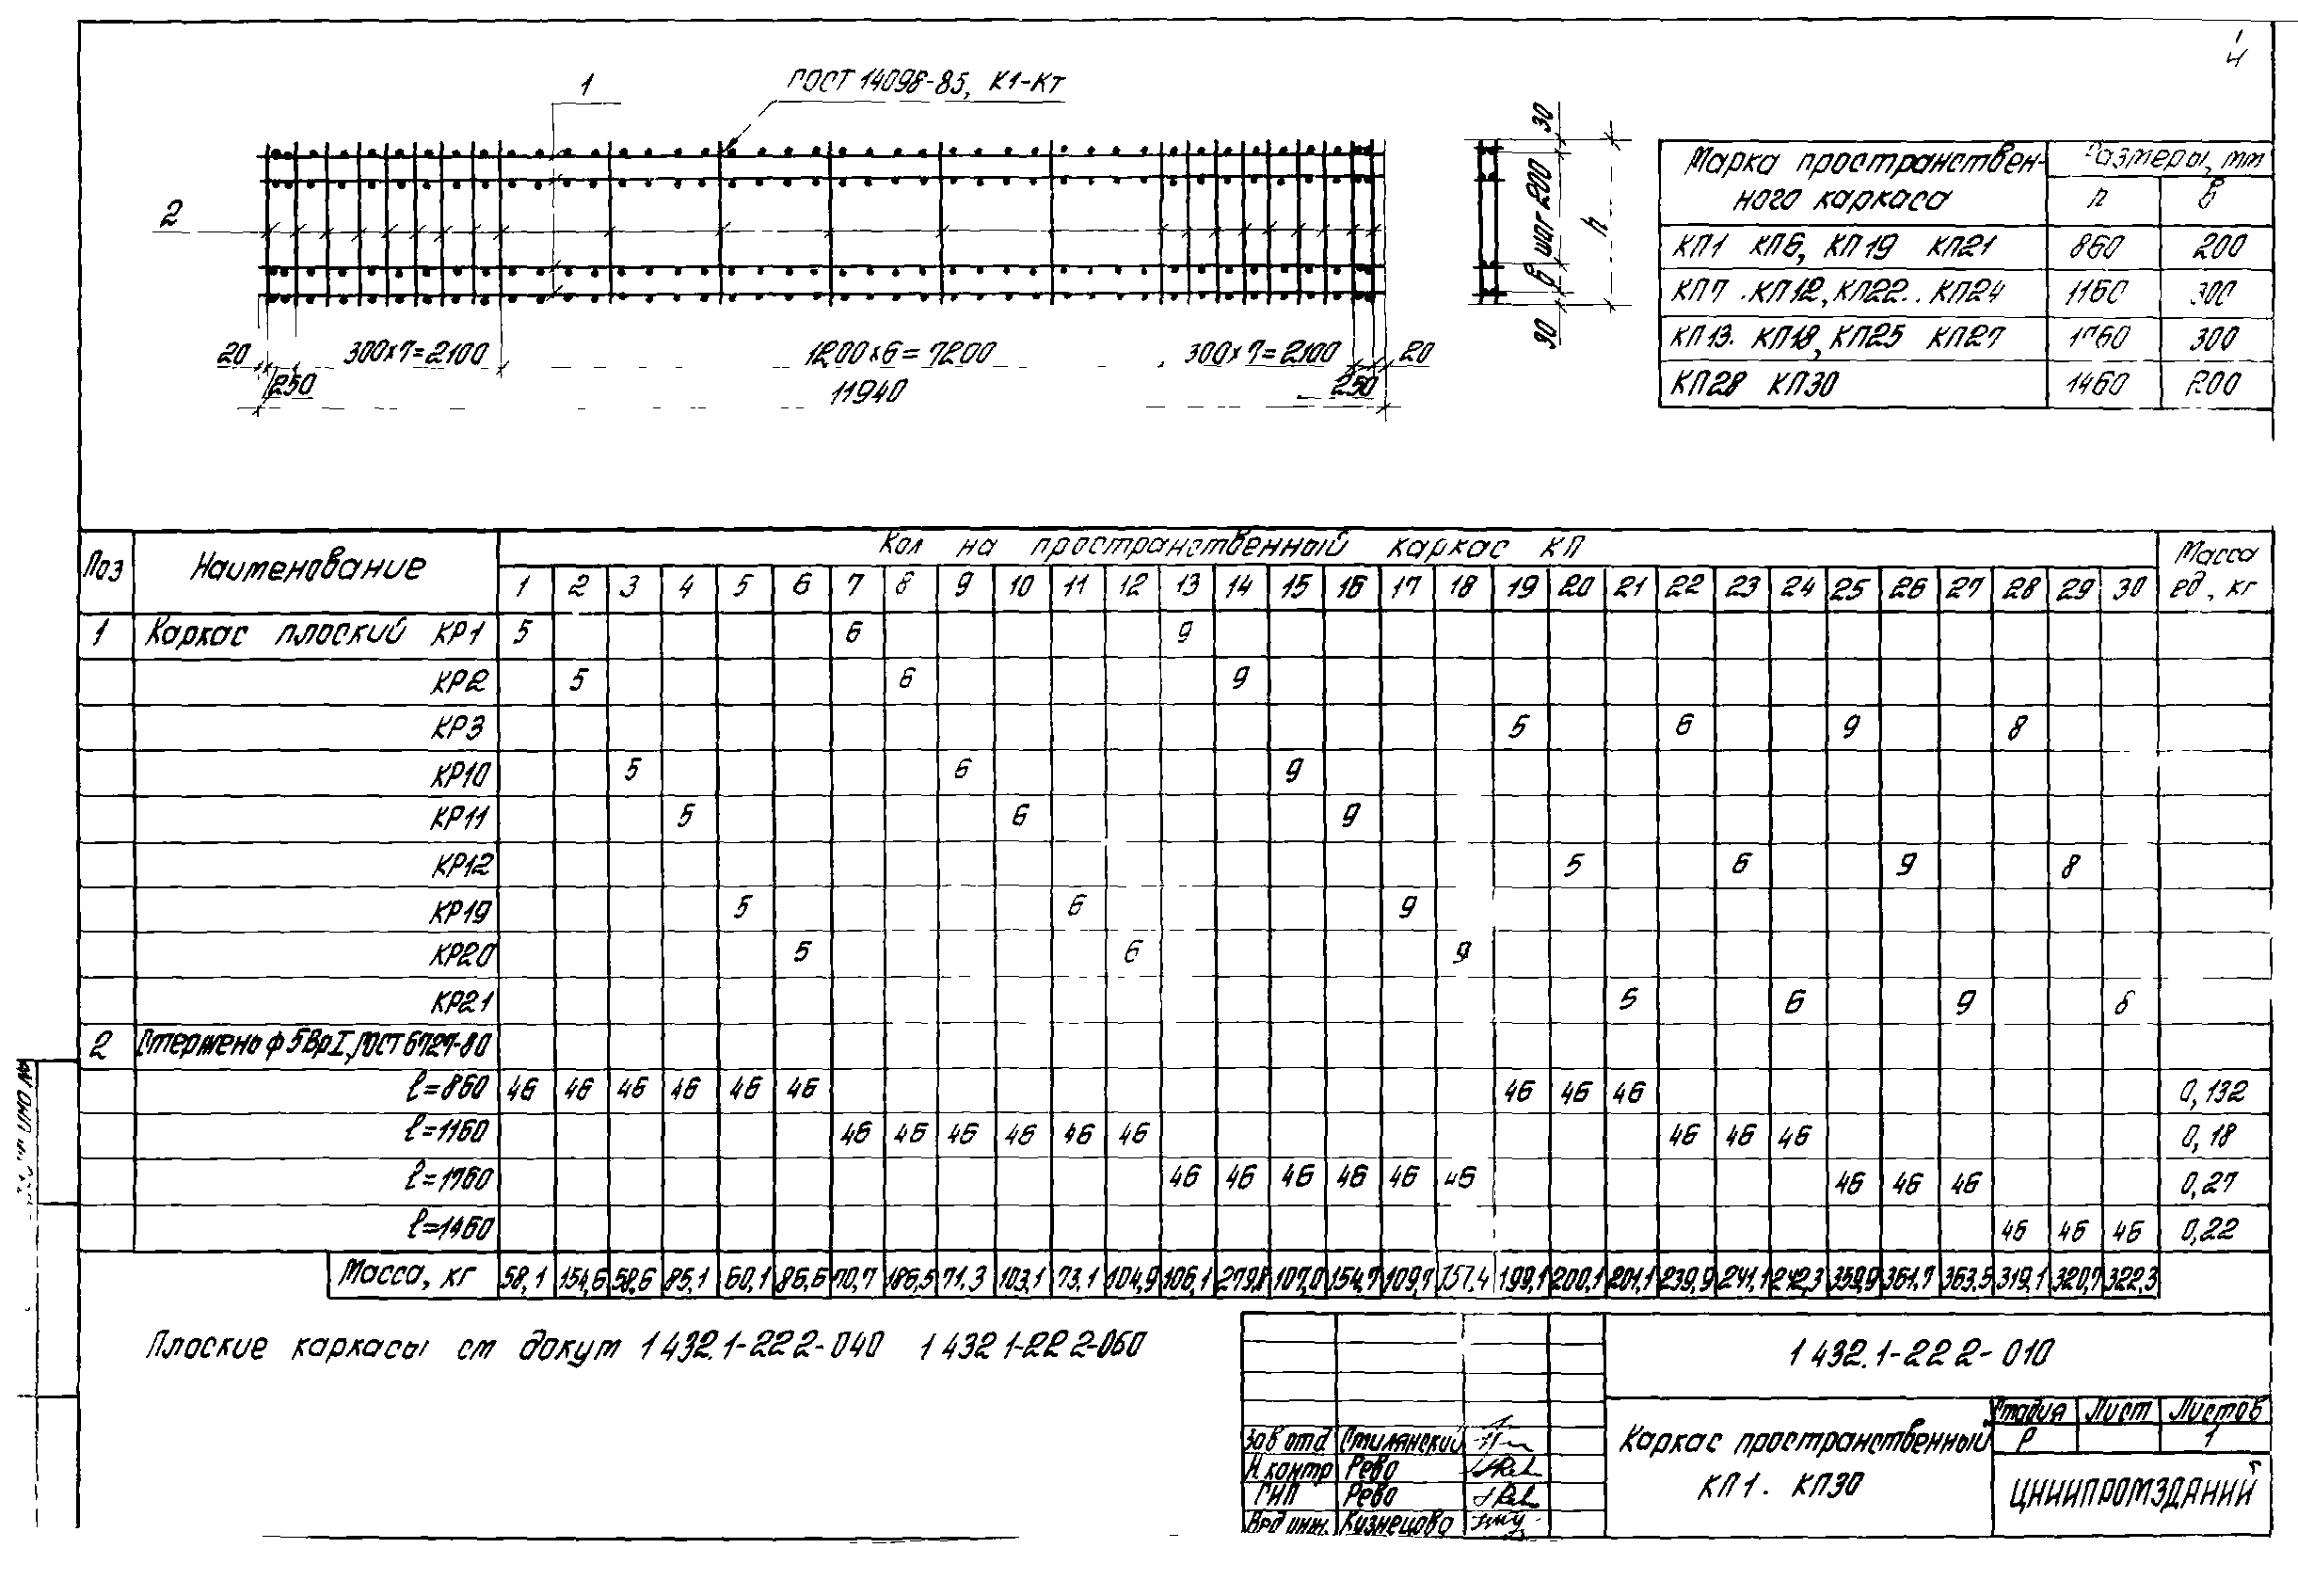 4
1
ГОСТ 14098-85, К1-Кт
2
20
250
300х7=2100
1200х6=7200
300х7=2100
250
20
11940
30
шаг 200
h
в
30
Марка пространствен-
ного каркаса
Размеры, мм
h в
КП1 КП6, КП19 КП21 860 200
КП7 .КП12, КП22.. КП24 1160 300
КП13. КП18, КП25 КП27 1760 300
КП28 КП30 1460 200
Поз Наименование Кол на пространственный каркас КП Масса ед, кг
1 2 3 4 5 6 7 8 9 10 11 12 13 14 15 16 17 18 19 20 21 22 23 24 25 26 27 28 29 30
1 Каркас плоский КР1 5 6 9
КР2 5 6 9
КР3 5 6 9 8
КР10 5 6 9
КР11 5 6 9
КР12 5 6 9 8
КР19 5 6 9
КР20 5 6 9
КР21 5 6 9 8
2 Стержень ф 5ВрI, ГОСТ 6727-80
ℓ=860 46 46 46 46 46 46 46 46 46 0,132
ℓ=1160 46 46 46 46 46 46 46 46 46 0,18
ℓ=1760 46 46 46 46 46 46 46 46 46 0,27
ℓ=1460 46 46 46 0,22
Масса, кг 58,1 154,6 58,6 85,1 60,1 86,6 70,7 186,5 71.3 103,1 73,1 104,9 106,1 279,8 107,0 154,7 109,7 157.4 199,1 200,1 201,1 239,9 241,1 242,3 359,9 361,7 363,5 319,1 320,7 322,3
Плоские каркасы см докум 1 432.1-22 2-040 1 432 1-22 2-060
1 432.1-22 2-010
Зав отд Стилянский
Н.контр Рево
ГИП Рево
Вед инж. Кузнецова
Каркас пространственный
КП 1. КП30
Стадия Лист Листов
Р 1
ЦНИИПРОМЗДАНИЙ